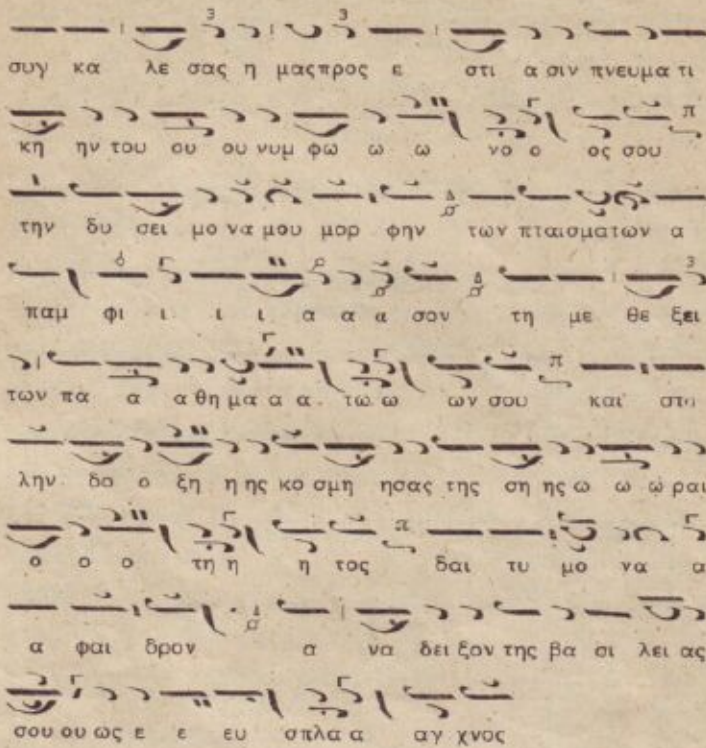 συγ κα λε σας η μας προς ε στι α σιν πνευμα τι
κη ην του ου ου νυμ φω ω ω νο ο ος σου
την δυ σει μο να μου μορ φην των πταισματων α
παμ φι ι ι ι α α α σον τη με θε ξει
των πα α α θη μα α α τω ω ων σου και στο
λην δο ο ξη η ης κο σμη ησας της ση ης ω ω ω ραι
ο ο ο τη η η τος δαι τυ μο να α
α φαι δρον α να δει ξον της βα σι λει ας
σου ου ως ε ε ευ σπλα α αγ χνος